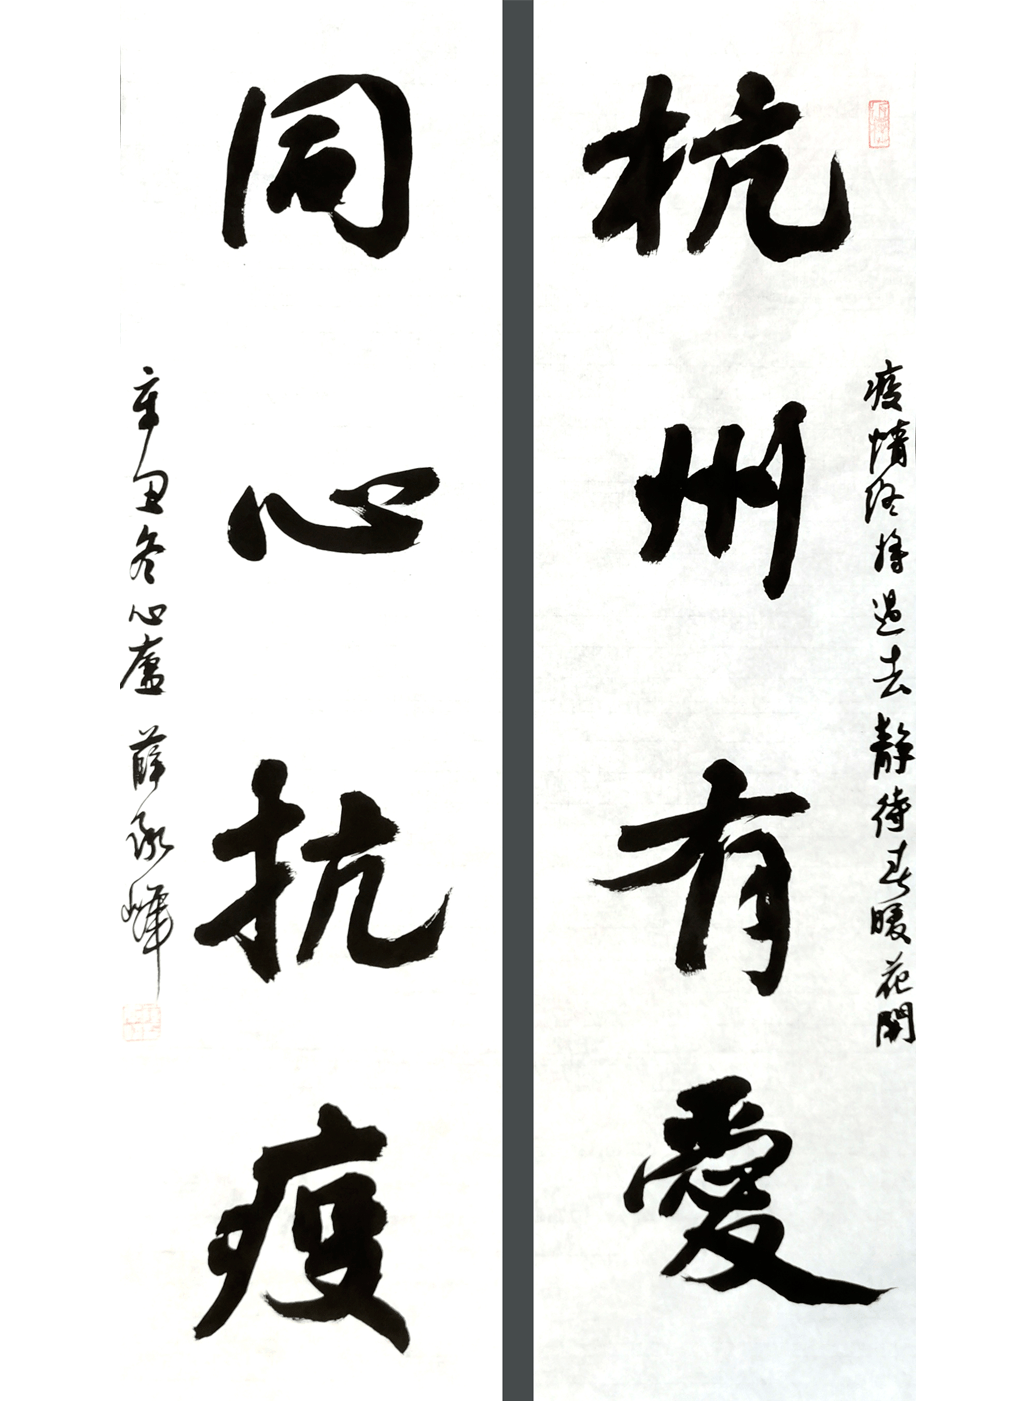 疫情终将过去静待春暖花開
杭州有愛
同心抗疫
辛丑冬心廬薛承峰